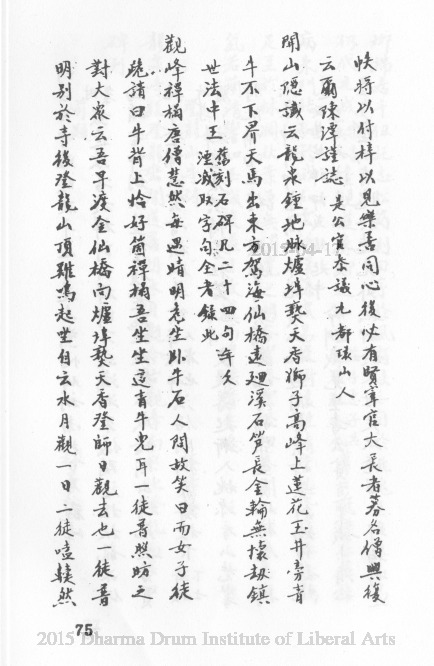 帙將以付梓以見樂善同心後必有賢宰官大長者蓍名僧興復
云爾陳潭謹誌 是公官參議尢都環山人
開山隱讖云龍泉鍾地脉爐峰爇天香獅子高峰上蓮花玉井旁青
牛不下界天馬出東方駕海仙橋遠廻溪石笋長金輪無懷劫鎮
世法中王 舊刻石碑凡二十四句年久
湮滅取字句全者錄此
觀峰禪橋唐僧慧然每遇晴明輒坐卧牛石人問故笑曰而女子徒
跪請曰牛背上恰好箇禪橋吾坐坐這青牛兒耳一徒普照昉之
對大衆云吾早渡金仙橋向爐峰爇天香登師日觀去也一徒普
明别於寺後登龍山頂雞鳴起坐自云水月觀一日二徒嗑
然
75
2015-04-17
2015 Dharma Drum Institute of Liberal Arts